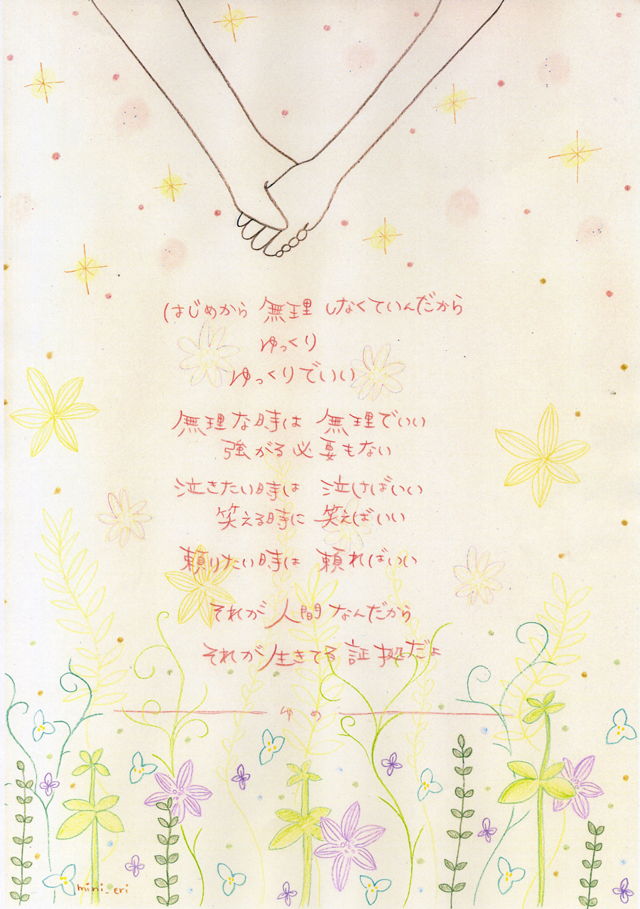 はじめから 無理 しなくていんだから
ゆっくり
ゆっくりでいい
無理な時は 無理でいい
強がる必要もない
泣きたい時は 泣けばいい
笑える時に 笑えばいい
頼りたい時は 頼ればいい
それが 人間 なんだから
それが 生きてる 証拠だよ
ゆの
mini_eri